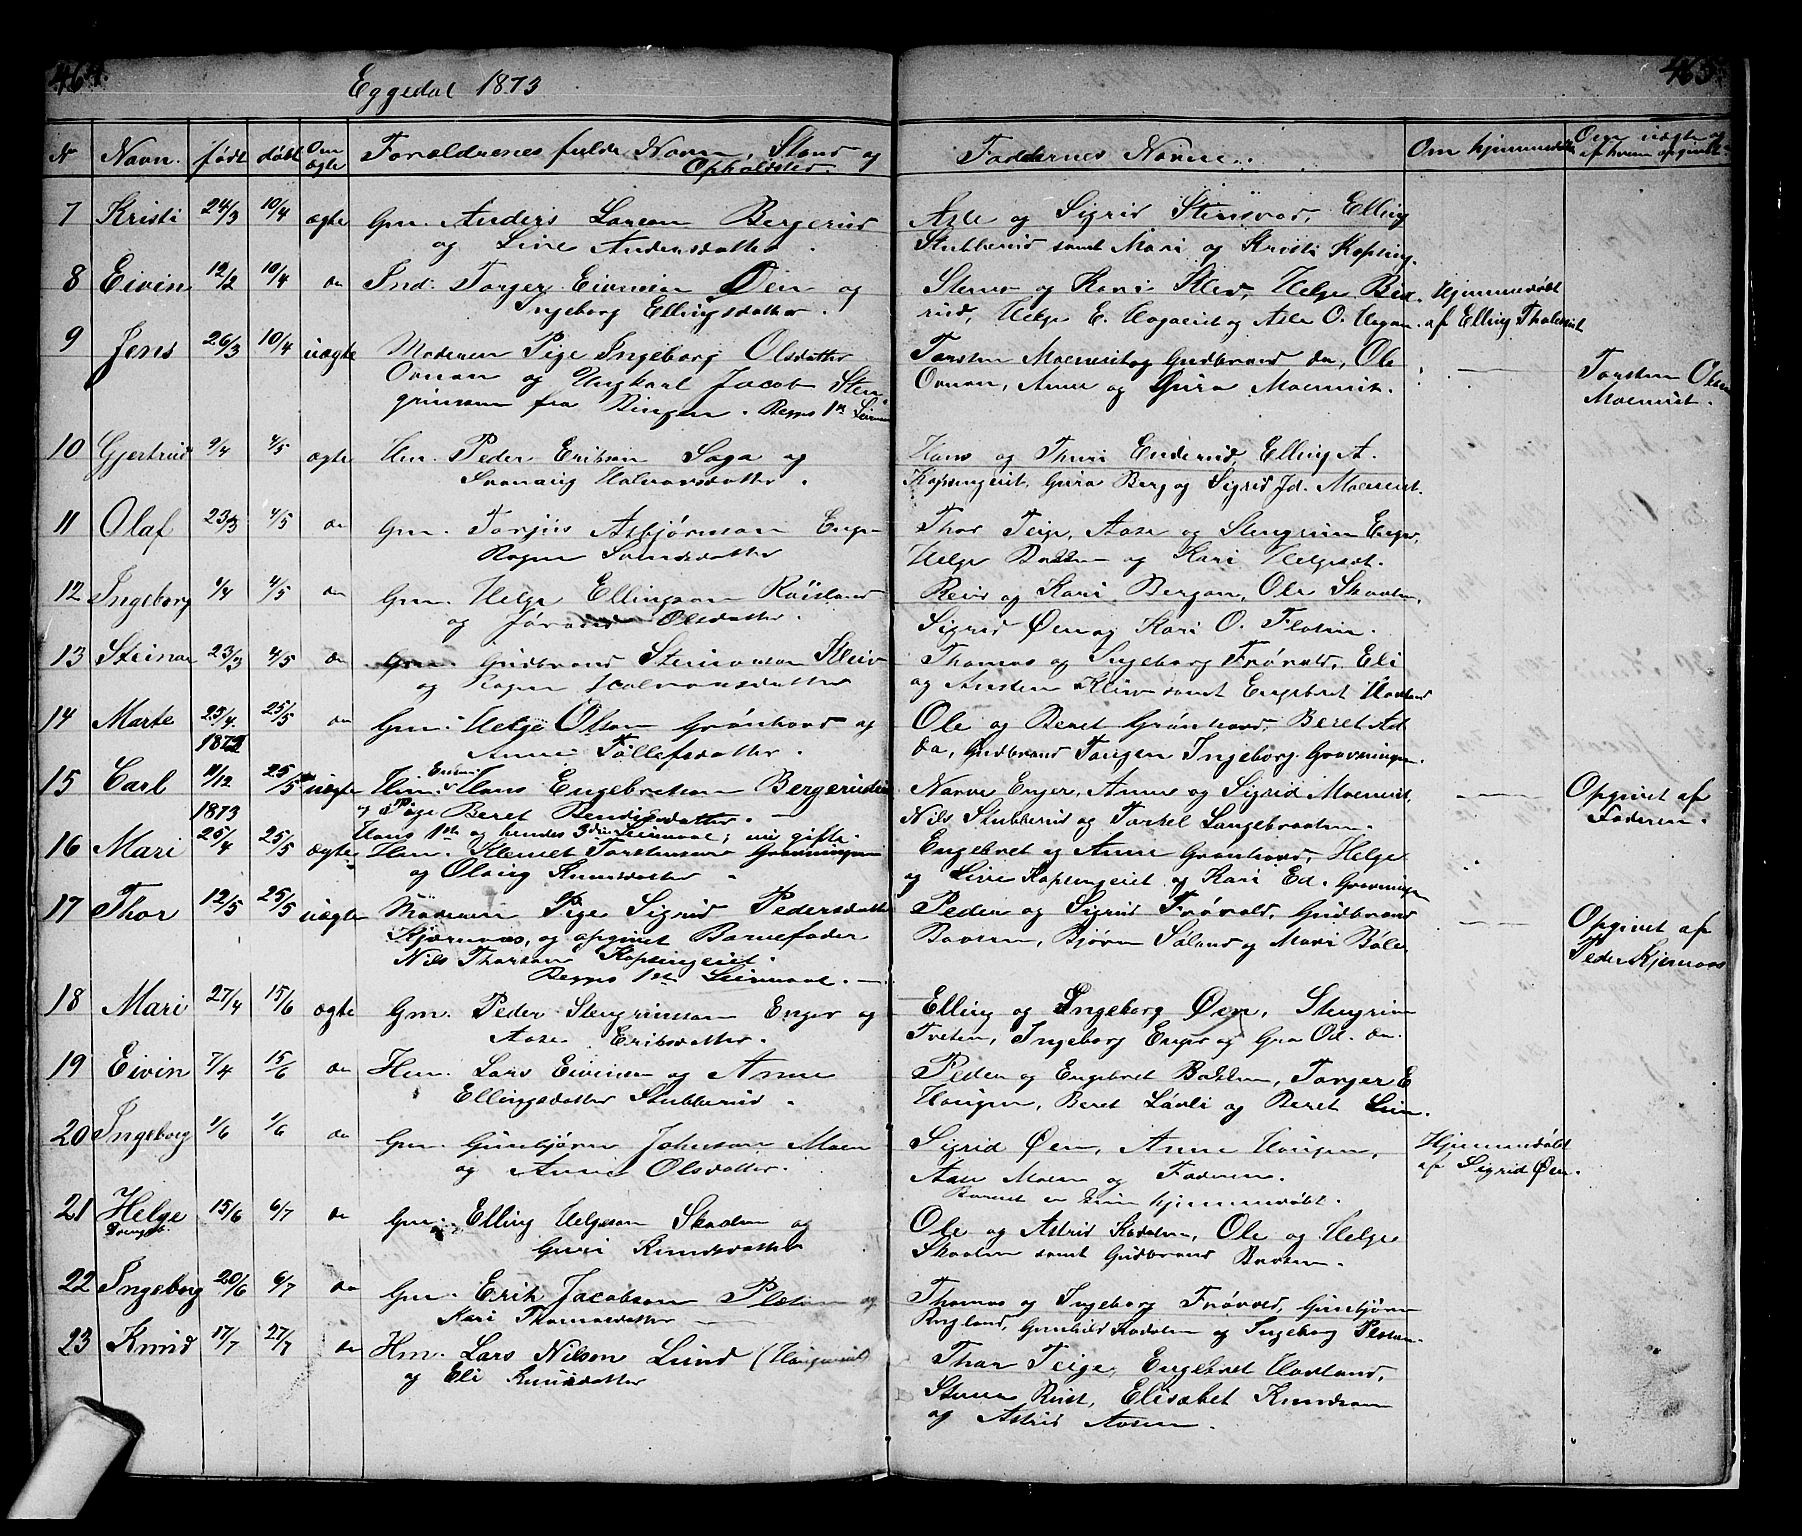 464.
465.
Eggedal 1873
N Navn. født døbt Om ægte Forældrenes fulde Navn, Stand og Opholdsted.
Faddernes Navne. Om hjemmedøbt Om uægte og af hvem opgivet
7 Kristi 24/3 10/4 ægte Gm. Anders Larsen Bergerud
og Live Andersdatter.
Asle og Sigrid Stensvad, Elling
Stubberud samt Mari og Kristi Kopseng.
8 Eivin 12/2 10/4 do Ind. Torger Eivinsen Øen og
Ingeborg Ellingsdatter.
Stener og Kari Kleiv, Helge Bak-
rud, Helge E. Hagaeiet og Asle O. Hagan.
Hjemmedøbt
af Elling Tholerud
9 Jens 26/3 10/4 uægte Moderen Pige Ingeborg Olsdatter
Ovnan og Ungkarl Jacob Sten-
grimsen fra Ringen. Begges 1ste Leirmaal
Torsten Moeneiet og Gudbrand do, Ole
Ovnan, Anne og Guro Moeneiet.
Torsten Olsen
Moeneiet.
10 Gjertrud 9/4 4/5 ægte Hm. Peder Eriksen Saga og
Svanaug Halvorsdatter.
Hans og Thuri Enderud, Elling A.
Kopsengeiet, Guro Berg og Sigrid Jd. Moeneiet.
11 Olaf 23/3 4/5 do Gm. Torjus Asbjørnsen Enger
Ragne Svendsdatter
Thor Teige, Aase og Stengrim Enger,
Helge Bakken og Kari Helgeset.
12 Ingeborg 1/4 4/5 do Gm. Helge Ellingsen Røisland
og Jøran Olsdatter.
Reier og Kari Bergan, Ole Skaalen,
Sigrid Øen og Kari O. Flaten.
13 Steinar 23/3 4/5 do Gm. Gudbrand Steinarsen Kleiv
og Ragne Halvorsdatter
Thomas og Ingeborg Frøvold, Eli
og Ansten Kleiv samt Engebret Havland
14 Marte 23/4. 25/5 do Gm. Helge Olsen Grønhovd og
Anne Tollefsdatter.
Ole og Beret Grønhovd, Beret Ad.
do, Gudbrand Tangen Ingeborg Gravningen.
1872
15 Carl 11/12 25/5 uægte Enkem. Hans Engebretsen Bergerudeie
og Pige Beret Bendiksdatter.
Hans 1ste og hendes 3die Leirmaal; nu gifte.
Narve Enger, Anne og Sigrid Moeneiet,
Nils Stubberud og Torkel Langebraaten.
Opgivet af
Faderen.
1873
16 Mari 25/4 25/5 ægte Hm. Klemet Torstensen Gravningen
og Olaug Knudsdatter
Engebret og Anne Grønhovd, Helge
og Live Kopsengeiet og Kari Ed. Gravningen
17 Thor 12/5 25/5 uægte Moderen Pige Sigrid Pedersdatter
Kjærnaas, og opgivet Barnefader
Nils Thorsen Kopsengeiet.
Begges 1ste Leirmaal.
Peder og Sigrid Frøvold, Gudbrand
Baasen, Bjørn Søland og Mari Bøle.
Opgivet af
Peder Kjernaas
18 Mari 27/4 15/6 ægte Gm. Peder Stengrimsen Enger og
Aase Eriksdatter.
Elling og Ingeborg Øen, Stengrim
Tveten, Ingeborg Enger og Gro Od. do.
19 Eivin 7/4 15/6 do Hm. Lars Eivinsen og Anne
Ellingsdatter Stubberud.
Peder og Engebret Bakken, Torger E
Haugen, Beret Løvli og Beret Lien.
20 Ingeborg 1/6 1/6 do Gm. Gunbjørn Johnsen Moen
og Anne Olsdatter.
Sigrid Øen, Anne Haugen,
Aase Moen og Faderen.
Barnet er kun hjemmedøbt.
Hjemmedøbt
af Sigrid Øen.
21 Helge 15/6 6/7 do Gm. Elling Helgesen Skaalen og
Guri Knudsdatter
Ole og Astrid Kadalen, Ole og Helge
Skaalen samt Gudbrand Braaten.
22 Ingeborg 20/6 6/7 do Gm. Erik Jacobsen Plassen og
Kari Thomasdatter
Thomas og Ingeborg Frøvold, Gunbjørn
Rugland, Gunhild Kadalen og Ingeborg Plassen.
23 Knud 17/7 27/7 do Hm. Lars Nilsen Lund (Haugerud)
og Eli Knudsdatter
Thor Teige, Engebret Havland,
Stener Rust, Elisabet Knudsen
og Astrid Aasen.